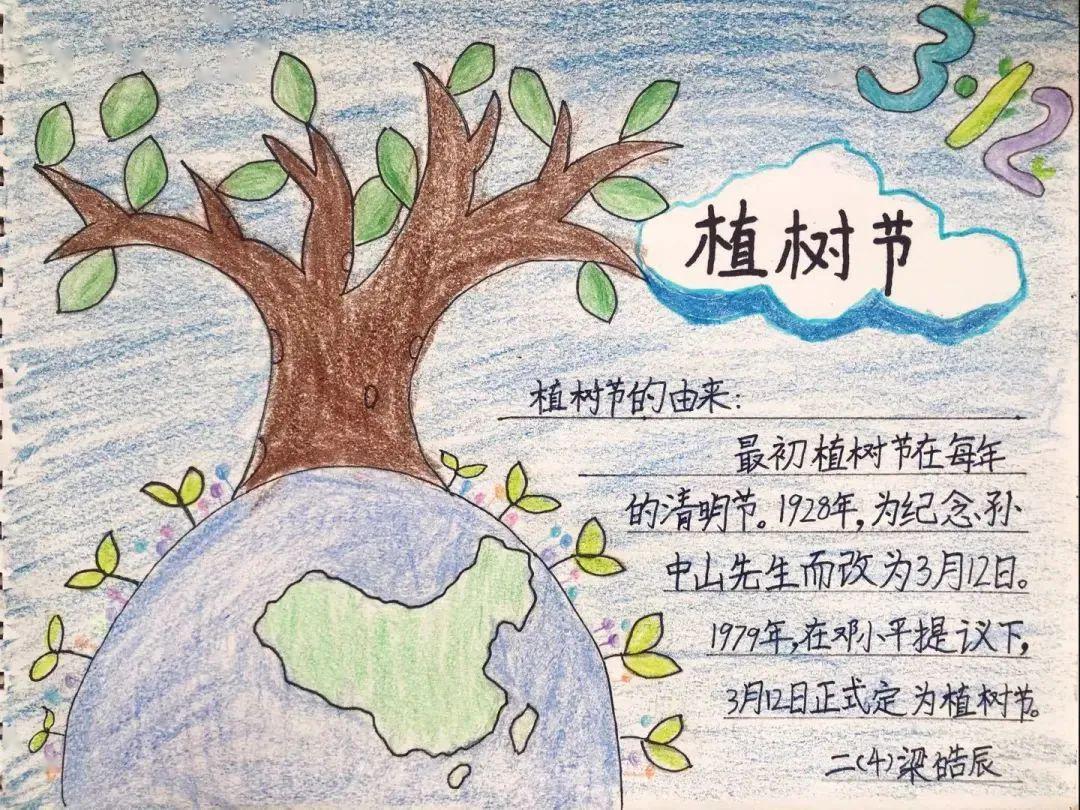 3·12
植树节
植树节的由来:
最初植树节在每年
的清明节。1928年,为纪念孙
中山先生而改为3月12日。
1979年,在邓小平提议下,
3月12日正式定为植树节。
二(4)梁皓辰